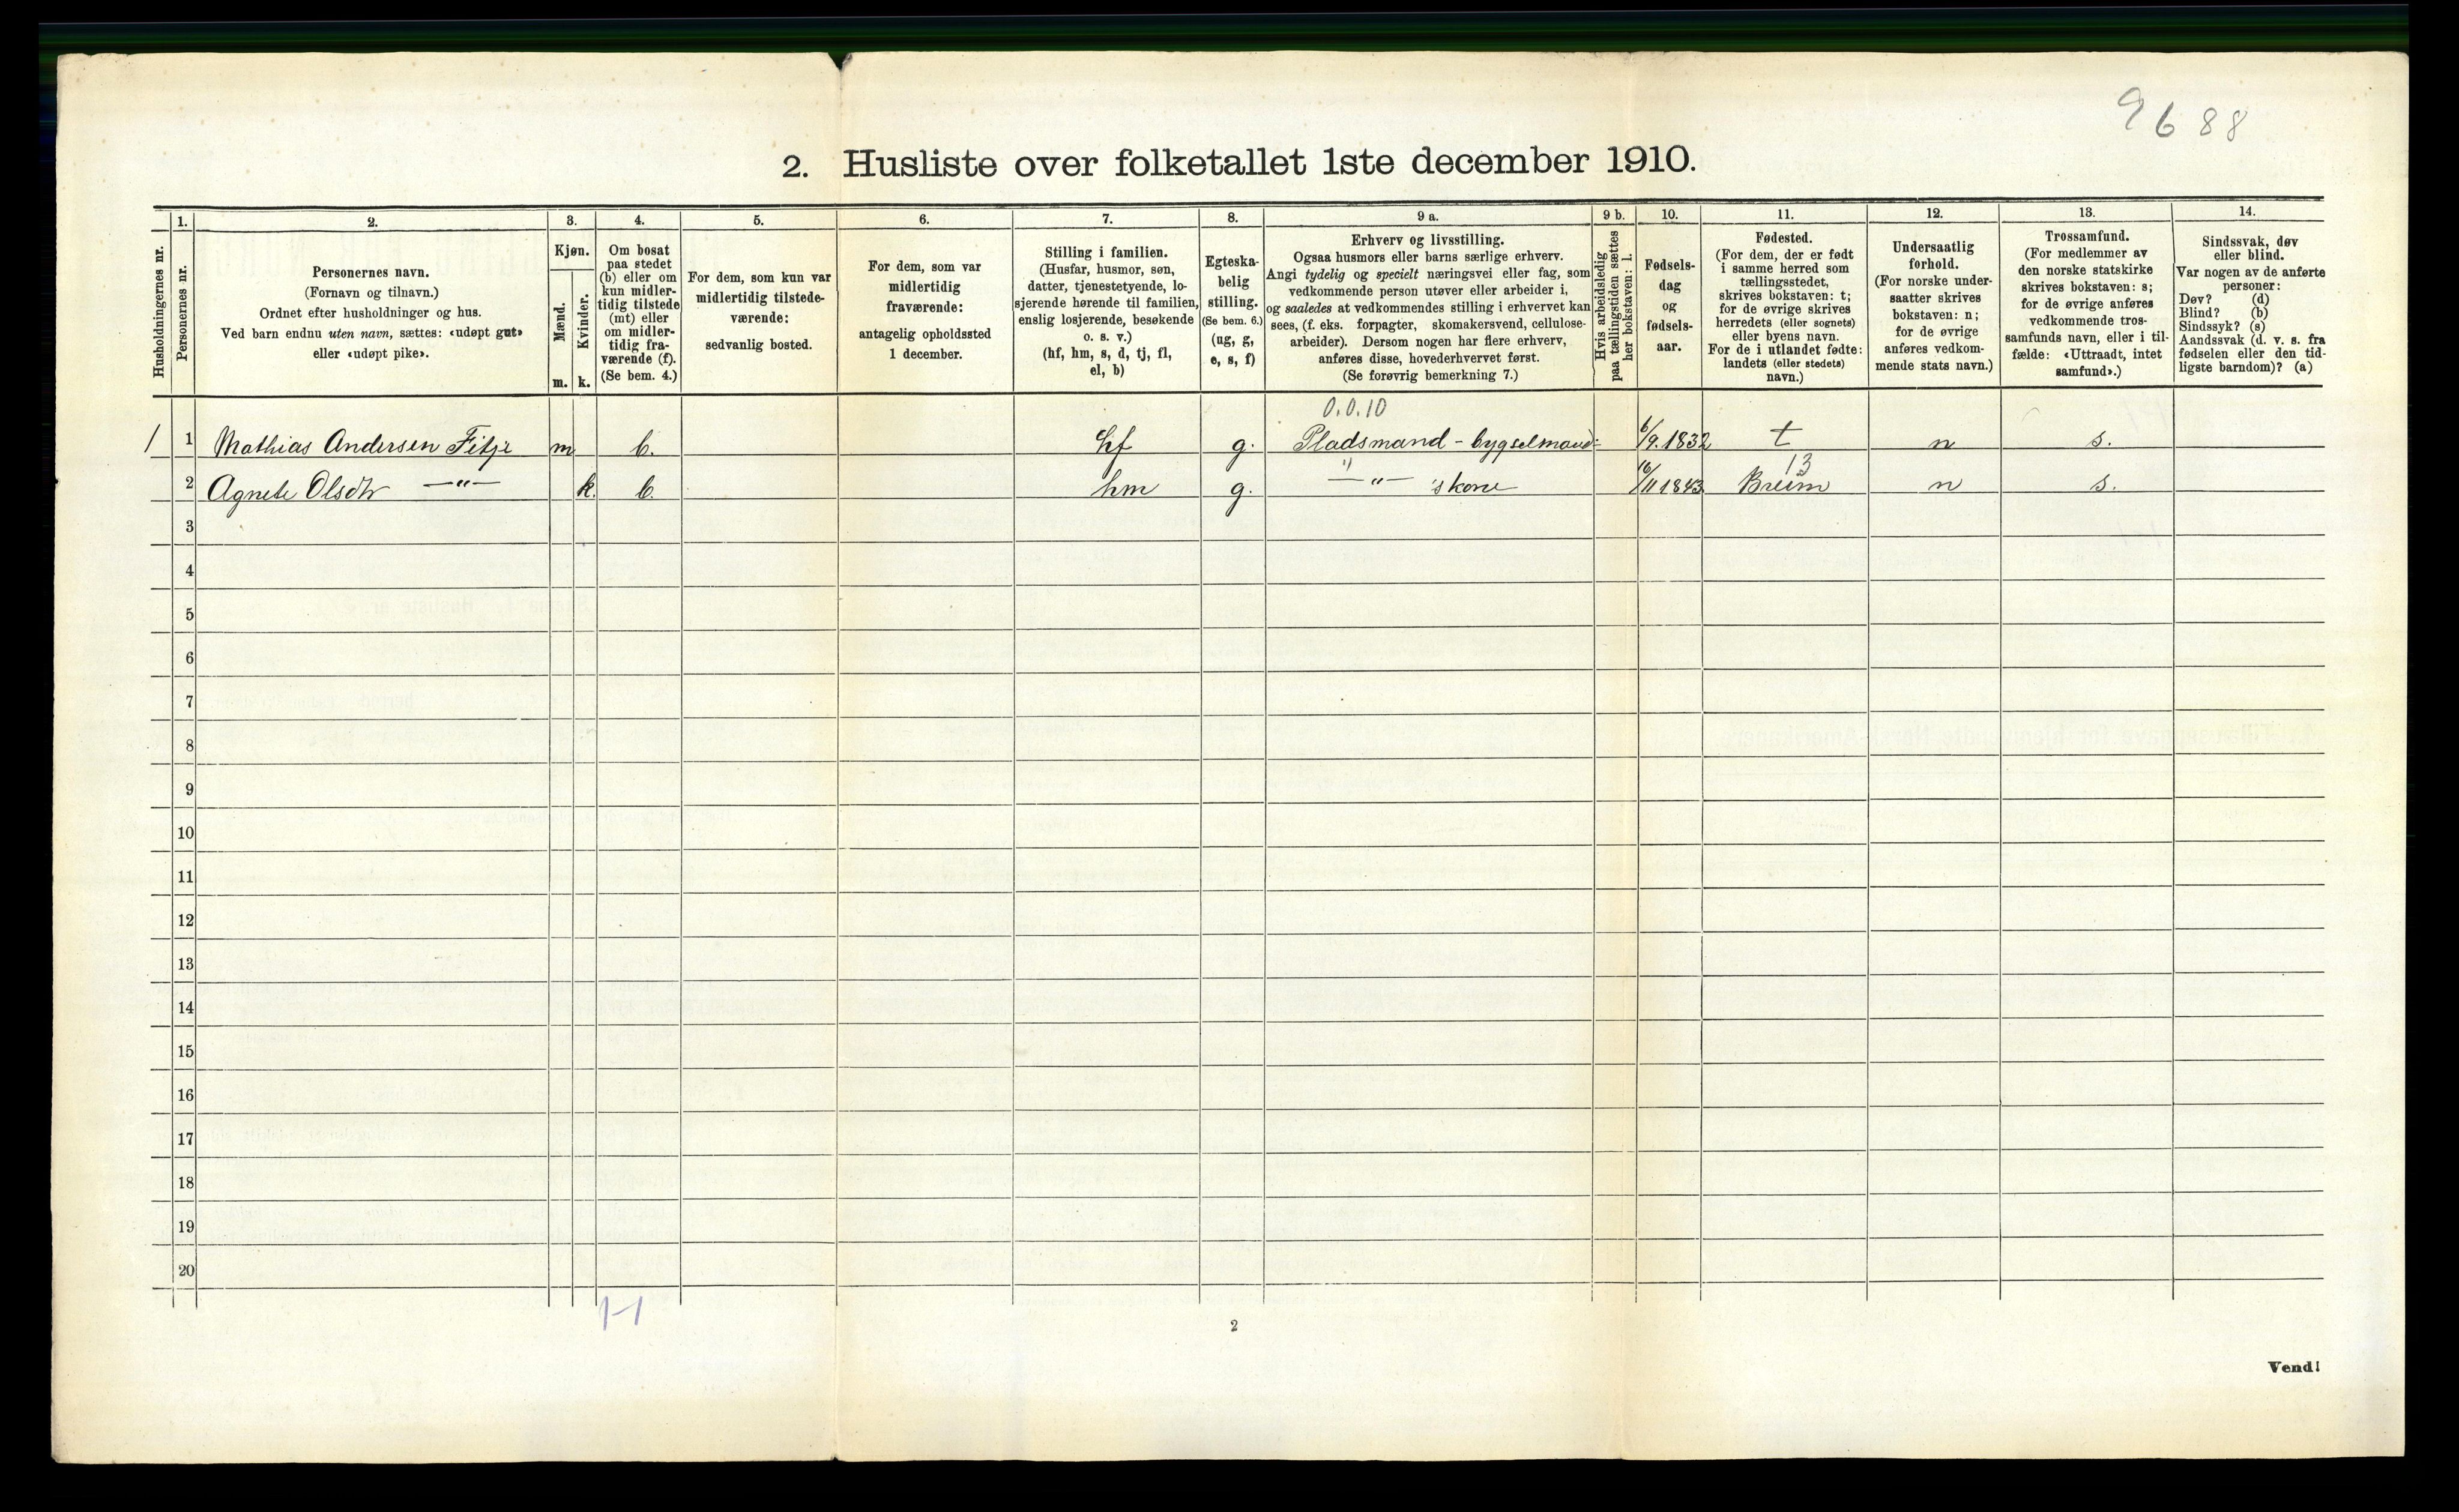 9688
2. Husliste over folketallet 1ste december 1910.
Husholdningernes nr.
1.
Personernes nr.
2.
Personernes navn.
(Fornavn og tilnavn.)
Ordnet efter husholdninger og hus.
Ved barn endnu uten navn, sættes: «udøpt gut»
eller «udøpt pike».
3.
Kjøn.
Mænd.
m.
Kvinder.
k.
4.
Om bosat
paa stedet
(b) eller om
kun midler-
tidig tilstede
(mt) eller
om midler-
tidig fra-
værende (f).
(Se bem. 4.)
5.
For dem, som kun var
midlertidig tilstede-
værende:
sedvanlig bosted.
6.
For dem, som var
midlertidig
fraværende:
antagelig opholdssted
1 december.
7.
Stilling i familien.
(Husfar, husmor, søn,
datter, tjenestetyende, lo-
sjerende hørende til familien,
enslig losjerende, besøkende
o. s. v.)
(hf, hm, s, d, tj, fl,
el, b)
8.
Egteska-
belig
stilling.
(Se bem. 6.)
(ug, g,
e, s, f)
9 a.
Erhverv og livsstilling.
Ogsaa husmors eller barns særlige erhverv.
Angi tydelig og specielt næringsvei eller fag, som
vedkommende person utøver eller arbeider i,
og saaledes at vedkommendes stilling i erhvervet kan
sees, (f. eks. forpagter, skomakersvend, cellulose-
arbeider). Dersom nogen har flere erhverv,
anføres disse, hovederhvervet først.
(Se forøvrig bemerkning 7.)
9 b.
Hvis arbeidsledig
paa tællingstiden sættes
her bokstaven: l.
10.
Fødsels-
dag
og
fødsels-
aar.
11.
Fødested.
(For dem, der er født
i samme herred som
tællingsstedet,
skrives bokstaven: t;
for de øvrige skrives
herredets (eller sognets)
eller byens navn.
For de i utlandet fødte:
landets (eller stedets)
navn.)
12.
Undersaatlig
forhold.
(For norske under-
saatter skrives
bokstaven: n;
for de øvrige
anføres vedkom-
mende stats navn.)
13.
Trossamfund.
(For medlemmer av
den norske statskirke
skrives bokstaven: s;
for de øvrige anføres
vedkommende tros-
samfunds navn, eller i til-
fælde: «Uttraadt, intet
samfund».)
14.
Sindssvak, døv
eller blind.
Var nogen av de anførte
personer:
Døv? (d)
Blind? (b)
Sindssyk? (s)
Aandssvak (d. v. s. fra
fødselen eller den tid-
ligste barndom)? (a)
0.0.10
1 1 Mathias Andersen Fitje m b. hf g. Pladsmand - bygselmand 6/9.1832 t n s.
13
2 Agnete Olsdtr —"— k. b hm g. —"— 's kone 16/11 1843 Breim n s.
3
4
5
6
7
8
9
10
11
12
13
14
15
16
17
18
19
20
1-1
2
Vend!